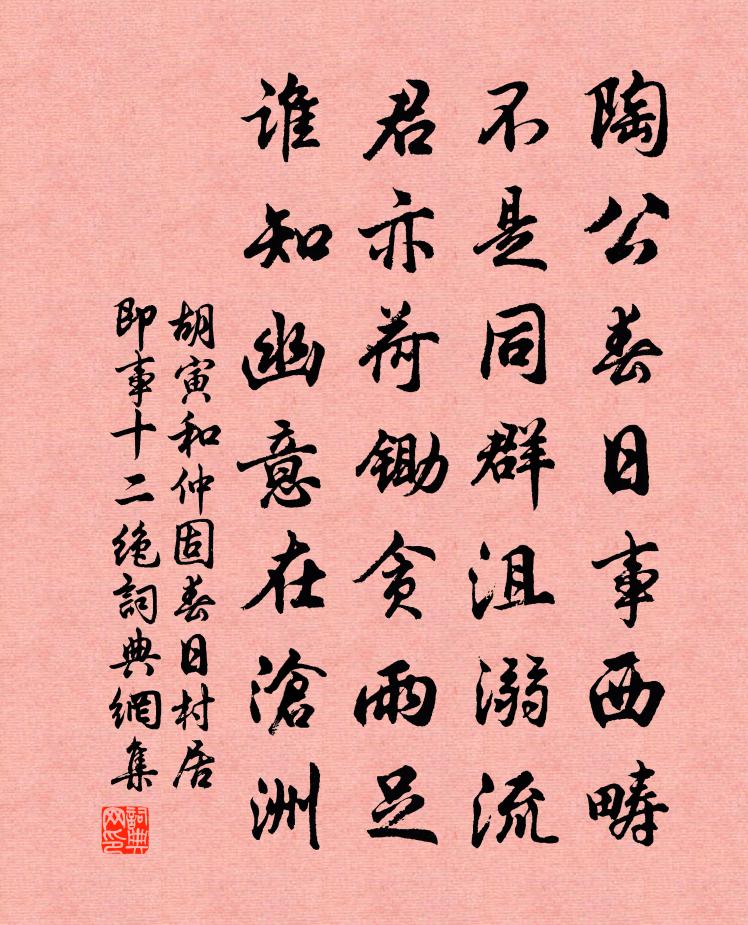 陶公春日事西畴
不是同群沮溺流
君亦荷锄贪雨足
谁知幽意在滄洲
胡寅和仲固春日村居
即事十二绝詞典網集
詞典网印